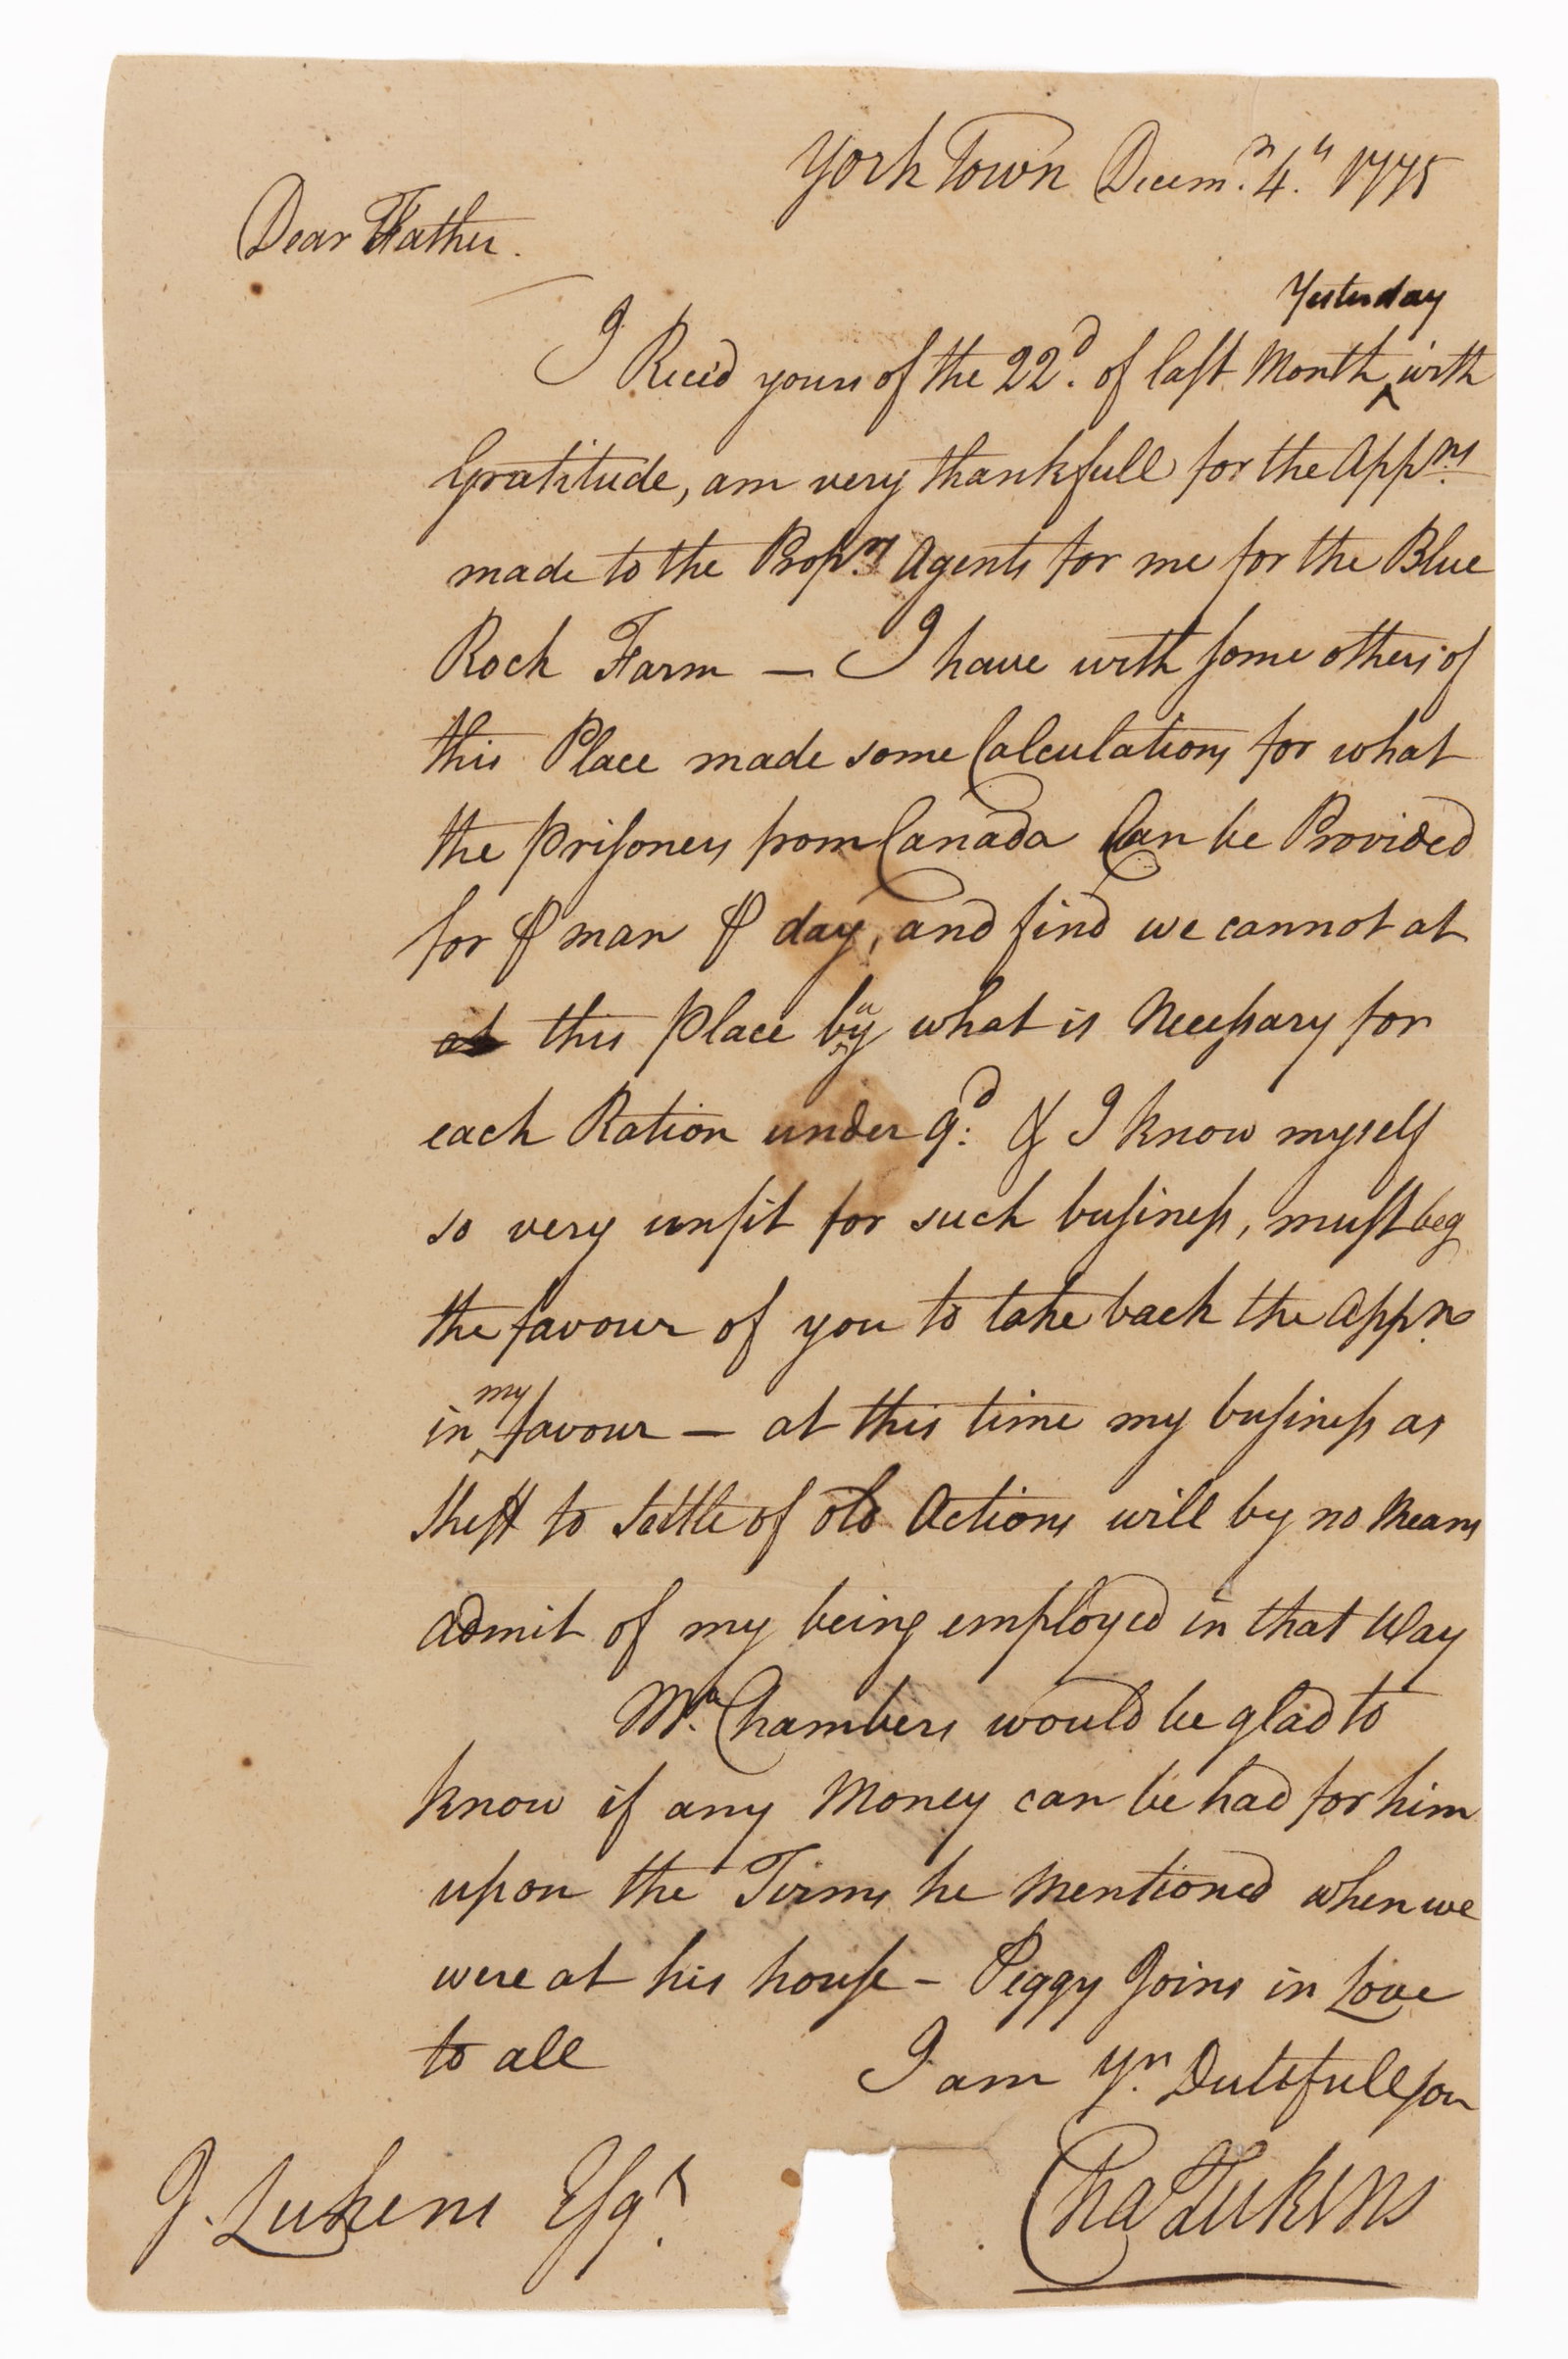 York Town Decem.r 4.th 1775
Dear Father.
Yesterday
I Recd yours of the 22d. of last Month ^ with
Gratitude, am very thankfull for the Appns.
made to the Propr.s Agents for me for the Blue
Rock Farm — I have with some others of
this Place made some Calculations for what
the prisoners from Canada Can be Provided
for ⅌ man ⅌ day, and find we cannot at
at this place buy what is Necessary for
each Ration under 9d: & I know myself
so very unfit for such business, must beg
the favour of you to take back the Appn.
my
in ^ favour — at this time my business as
Sheff to settle of old Actions will by no Means
admit of my being employed in that Way
Mr. Chambers would be glad to
know if any Money can be had for him
upon the Terms he Mentioned when we
were at his house – Peggy Joins in Love
to all
I am Yr. Dutifull son
Chas Lukens
J. Lukens Esqr.